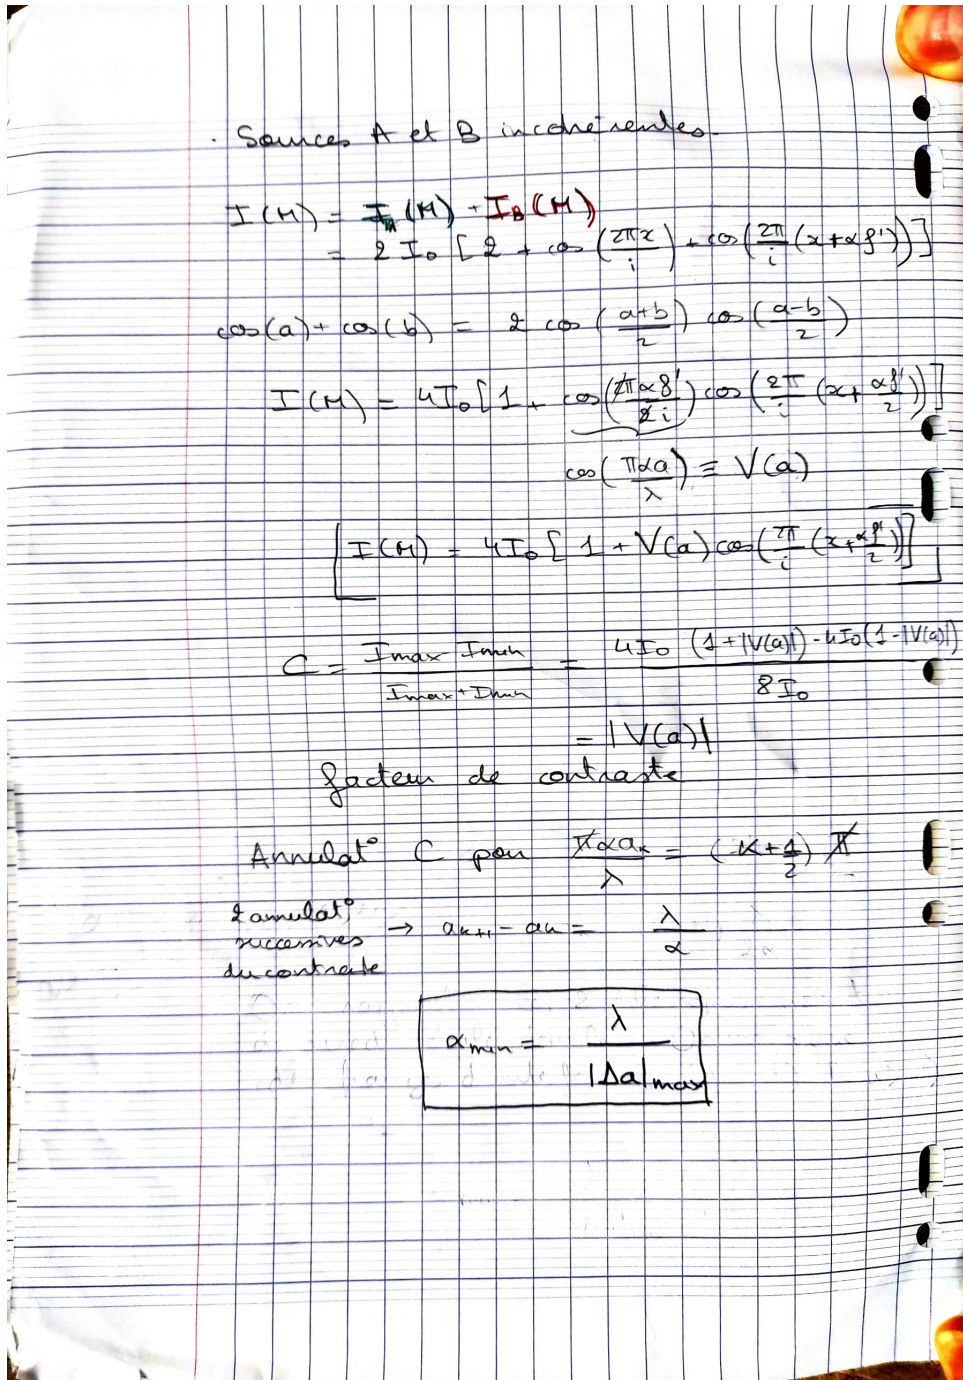 . Sources A et B incohérentes.
I(M) = I_A(M) + I_B(M)
= 2 I₀ [2 + cos(2πx/i) + cos(2π/i (x+αf'))]
cos(a) + cos(b) = 2 cos((a+b)/2) cos((a-b)/2)
I(M) = 4I₀ [1 + cos(2παf'/2i) cos(2π/i (x+ αf'/2))]
cos(παa/λ) ≡ V(a)
I(M) = 4I₀ [1 + V(a) cos(2π/i (x+αf'/2))]
C = (Imax - Imin)/(Imax + Imin) = (4I₀ (1+|V(a)|) - 4I₀(1-|V(a)|))/8I₀
= |V(a)|
facteur de contraste
Annulat° C pour παaₖ/λ = (K+1/2) π
2 annulat°
successives → aₖ₊₁ - aₖ = λ/α
du contraste
αmin = λ/|Δa|max